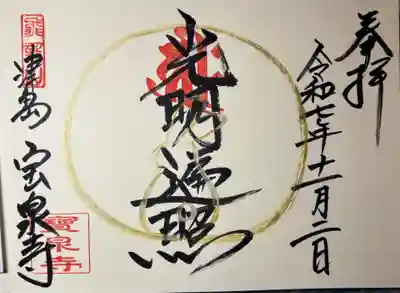 奉拝
令和七年十一月二日
光明遍照
津島 宝泉寺
寳泉寺